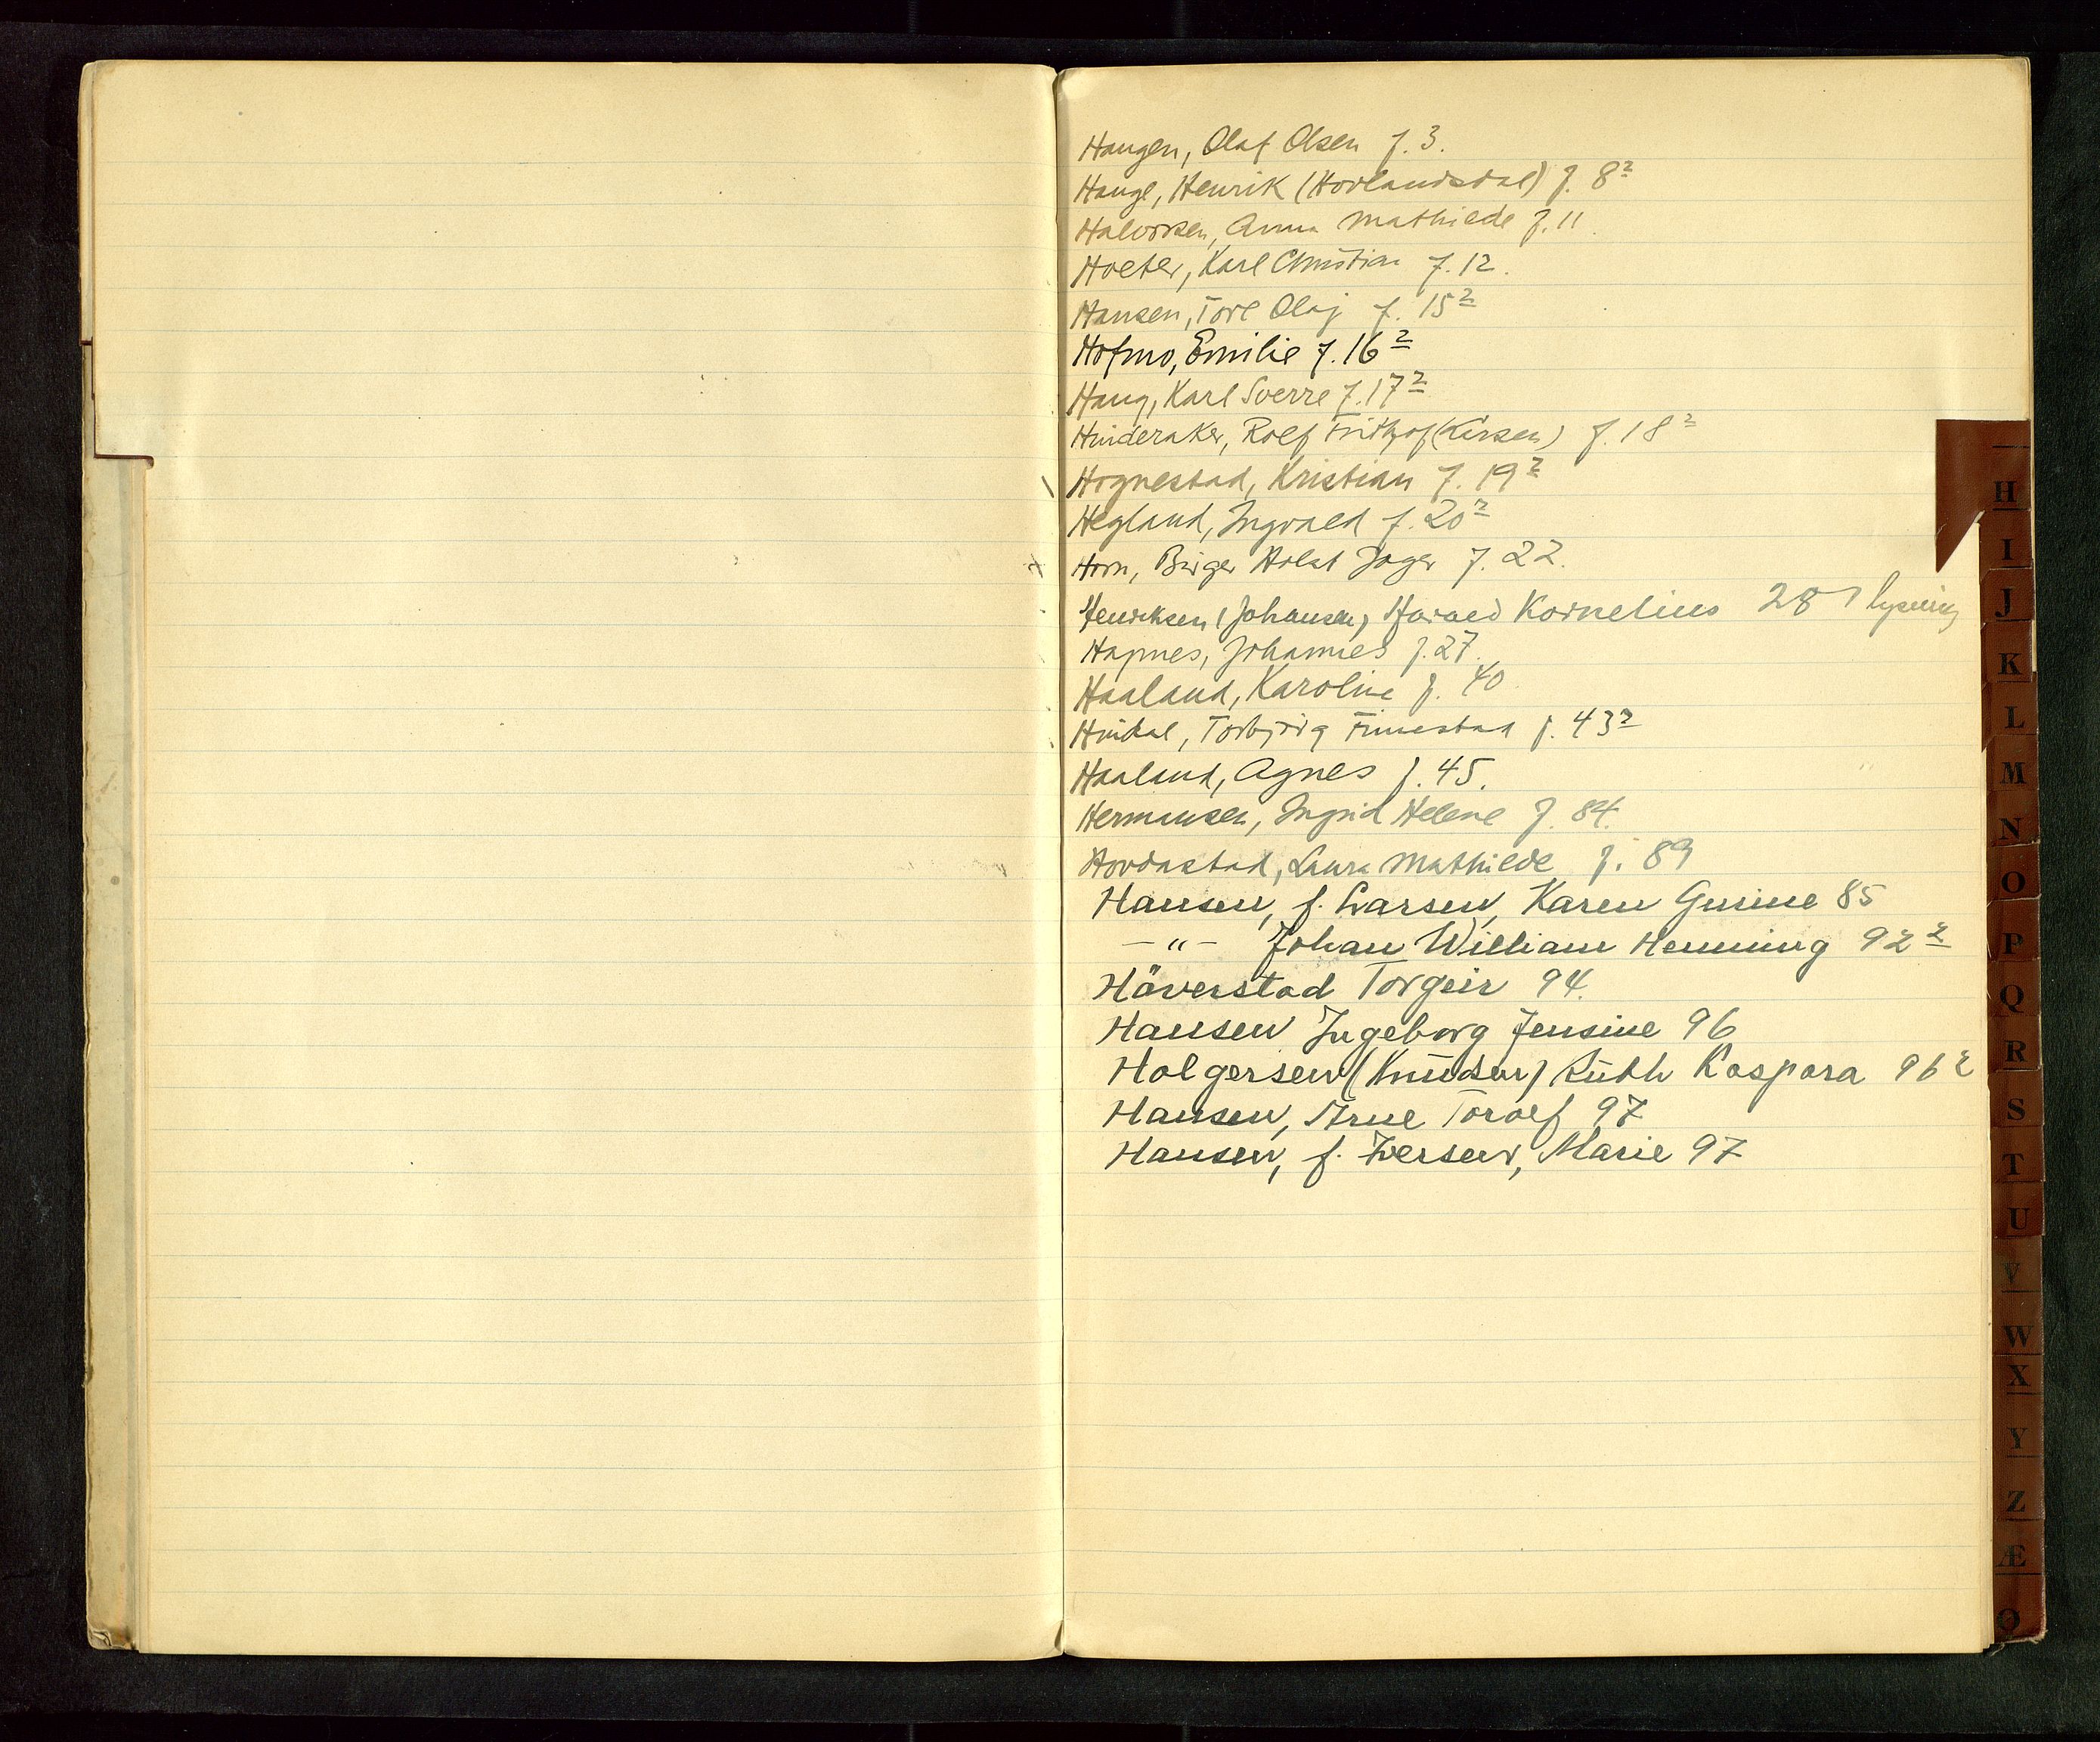 Haugen, Olaf Olsen f. 3.
Hauge, Henrik (Hovlandsdal) f. 8²
Halvorsen, Anna Mathilde f. 11.
Hveter, Karl Christian f. 12.
Hansen, Tore Olaf f. 15²
Hofmo, Emilie f. 16²
Haug, Karl Sverre f. 17²
Hinderaker, Rolf Frithjof (Larsen) f. 18²
Hognestad, Kristian f. 19²
Hegland, Ingvald f. 20²
Horn, Birger Holst Jager f. 22.
Henriksen (Johansen) Harald Kornelius 28 lysning
Hapnes, Johannes f. 27.
Haaland, Karoline f. 40
Hindal, Torbjørg Finnestad f. 43²
Haaland, Agnes f. 45.
Hermansen, Ingrid Helene f. 84.
Hovdastad, Laura Mathilde f. 89
Hansen, f. Larsen, Karen Gurine 85
— " — Johan William Henning 92²
Häverstad Torgeir 94.
Hansen Ingeborg Jensine 96
Holgersen (Knudsen) Ruth Kaspara 96²
Hansen, Arne Toralf 97
Hansen, f. Iversen, Marie 97
H
I
J
K
L
M
N
O
P
Q
R
S
T
U
V
W
X
Y
Z
Æ